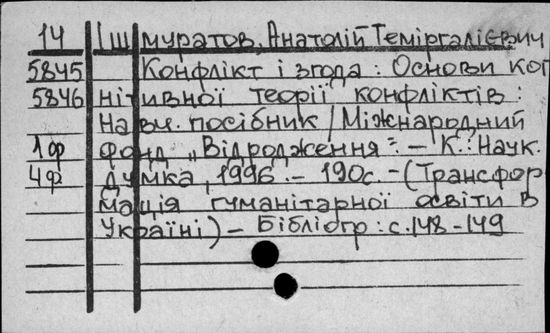 14 Ішмуратов, Анатолій Теміргалієвич
5845 Конфлікт і згода : Основи ког
5846 нітивної теорії конфліктів :
Навч. посібник / Міжнародний
1ф фонд „Відродження". – К. : Наук.
4ф думка, 1996. – 190с. – (Трансфор
мація гуманітарної освіти в
Україні) – Бібліогр : с. 148 - 149